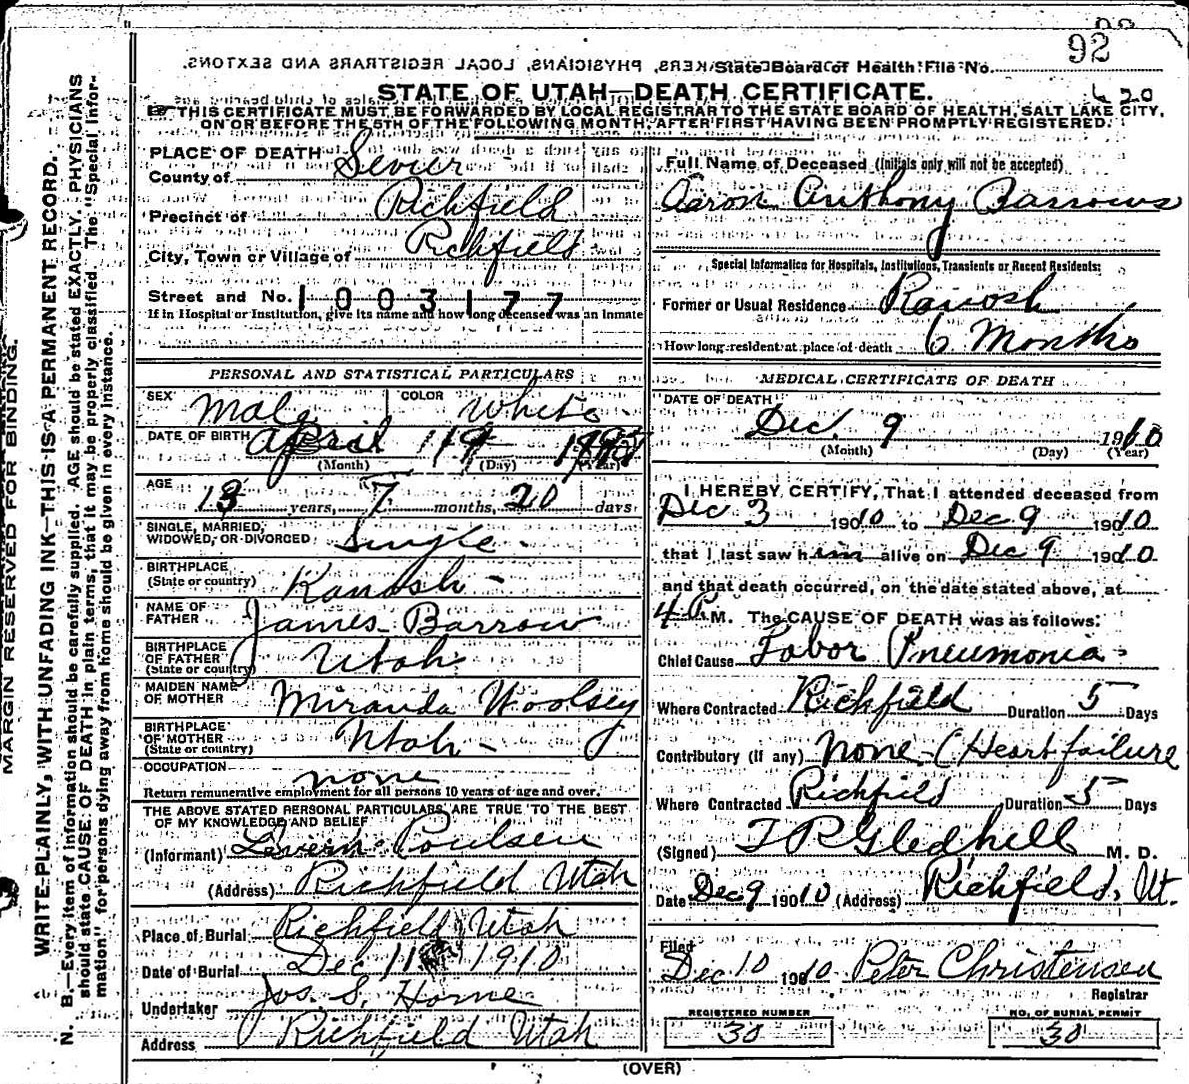 92
State Board of Health File No.
STATE OF UTAH—DEATH CERTIFICATE.
THIS CERTIFICATE MUST BE FORWARDED BY LOCAL REGISTRAR TO THE STATE BOARD OF HEALTH, SALT LAKE CITY,
ON OR BEFORE THE 5TH OF THE FOLLOWING MONTH, AFTER FIRST HAVING BEEN PROMPTLY REGISTERED.
PLACE OF DEATH
County of Sevier
Precinct of Richfield
City, Town or Village of Richfield
Street and No. 1003177
If in Hospital or Institution, give its name and how long deceased was an inmate
PERSONAL AND STATISTICAL PARTICULARS
SEX Male COLOR White
DATE OF BIRTH April 19
(Month) (Day) (Year)
AGE 13 years, 7 months, 20 days
SINGLE, MARRIED, WIDOWED, OR DIVORCED Single
BIRTHPLACE (State or country) Kanosh
NAME OF FATHER James Barrow
BIRTHPLACE OF FATHER (State or country) Utah
MAIDEN NAME OF MOTHER Miranda Woolsey
BIRTHPLACE OF MOTHER (State or country) Utah
OCCUPATION none
Return remunerative employment for all persons 10 years of age and over.
THE ABOVE STATED PERSONAL PARTICULARS ARE TRUE TO THE BEST
OF MY KNOWLEDGE AND BELIEF
(Informant) Poulsen
(Address) Richfield Utah
Place of Burial Richfield Utah
Date of Burial Dec 11 1910
Undertaker Jos. S. Horne
Address Richfield Utah
Full Name of Deceased (Initials only will not be accepted)
Aaron Anthony Barrows
Special Information for Hospitals, Institutions, Transients or Recent Residents:
Former or Usual Residence Kanosh
How long resident at place of death 6 Months
MEDICAL CERTIFICATE OF DEATH
DATE OF DEATH
Dec. 9 1910
(Month) (Day) (Year)
I HEREBY CERTIFY, That I attended deceased from
Dec 3 19010 to Dec 9 19010
that I last saw him alive on Dec 9 19010
and that death occurred, on the date stated above, at
4 P. M. The CAUSE OF DEATH was as follows:
Chief Cause Lobor Pneumonia
Where Contracted Richfield Duration 5 Days
Contributory (if any) none (Heart failure
Where Contracted Richfield Duration 5 Days
(Signed) T R Gledhill M. D.
Date Dec 9 19010 (Address) Richfield, Ut.
Filed
Dec 10 19010 Peter Christensen
Registrar
REGISTERED NUMBER
30
NO. OF BURIAL PERMIT
30
(OVER)
MARGIN RESERVED FOR BINDING.
WRITE PLAINLY, WITH UNFADING INK—THIS IS A PERMANENT RECORD.
N. B.—Every item of information should be carefully supplied. AGE should be stated EXACTLY. PHYSICIANS
should state CAUSE OF DEATH in plain terms, that it may be properly classified. The "Special Infor-
mation" for persons dying away from home should be given in every instance.